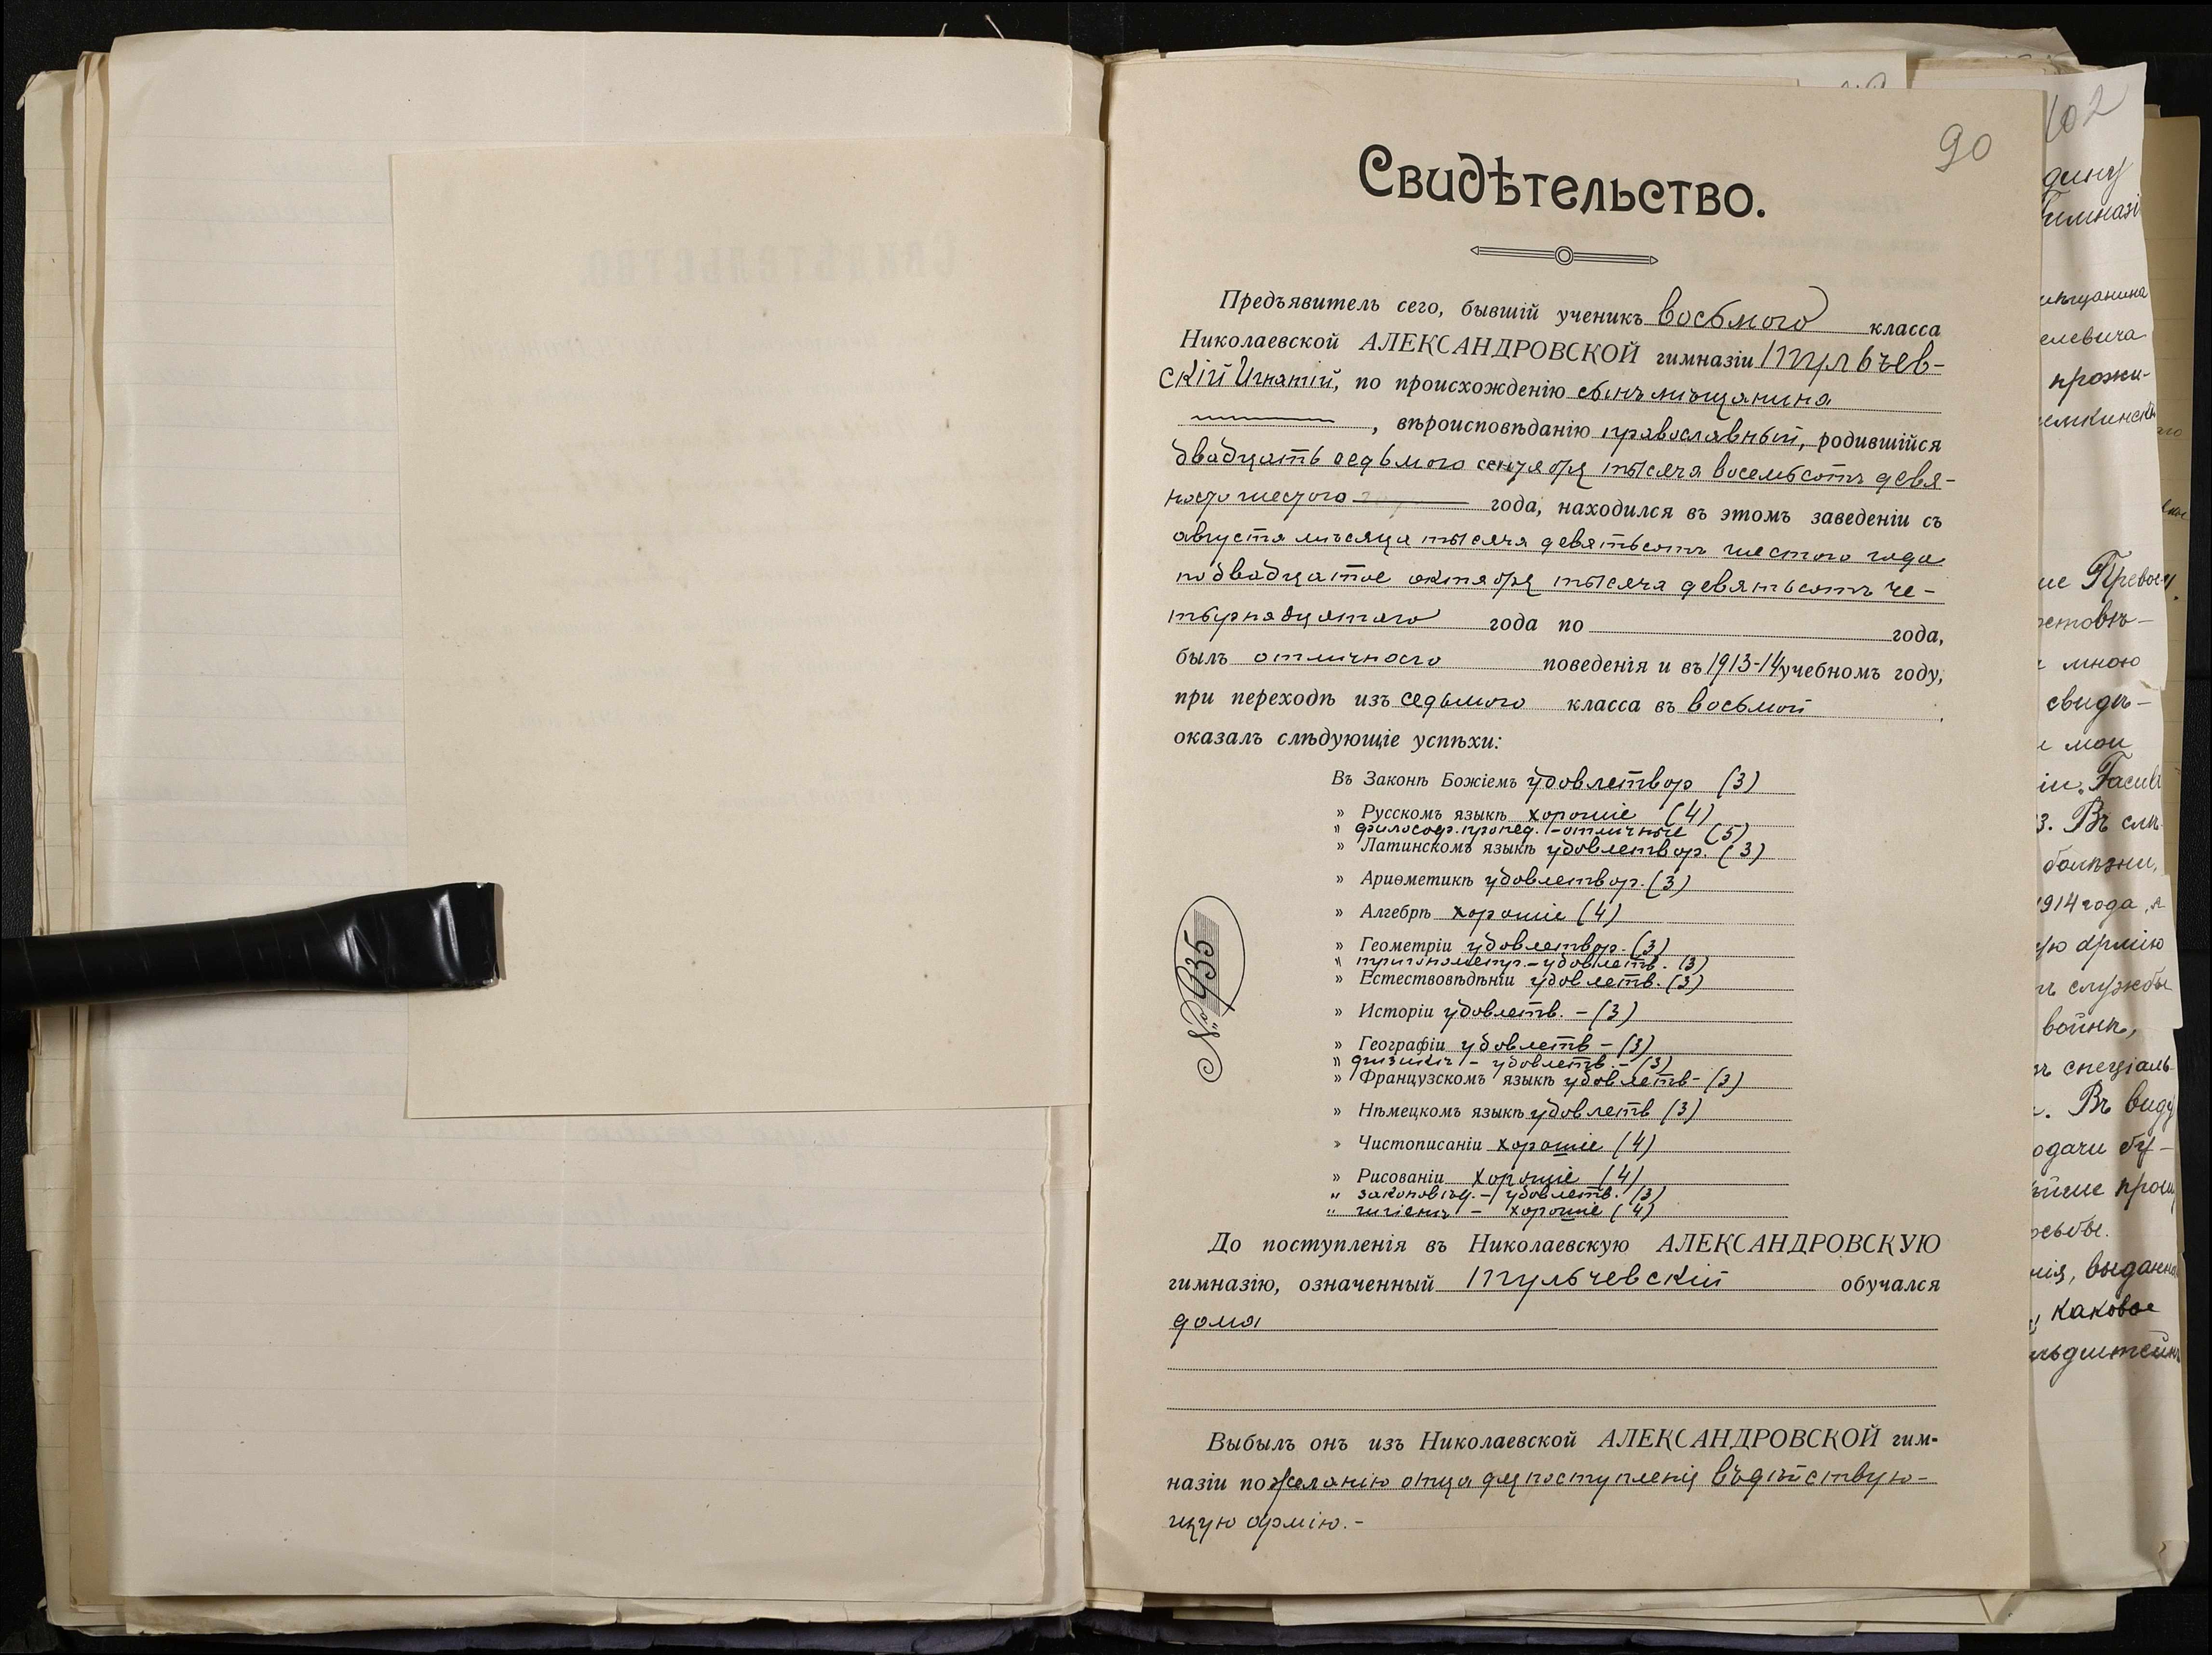 90
Свидѣтельство.
Предъявитель сего, бывшій ученикъ восьмого класса
Николаевской АЛЕКСАНДРОВСКОЙ гимназіи Тульчев-
скій Игнатій, по происхожденію сынъ мѣщанина
, вѣроисповѣданію православный, родившійся
двадцать седьмого сентября тысяча восемьсотъ девя-
носто шестого года, находился въ этомъ заведеніи съ
августа мѣсяца тысяча девятьсотъ шестого года
по двадцатое октября тысяча девятьсотъ че-
тырнадцатаго года по года,
былъ отличнаго поведенія и въ 1913-14 учебномъ году,
при переходѣ изъ седьмого класса въ восьмой
оказалъ слѣдующіе успѣхи:
Въ Законѣ Божіемъ удовлетвор (3)
» Русскомъ языкѣ хорошіе (4)
" философ. пропед. - отличные (5)
» Латинскомъ языкѣ удовлетвор. (3)
» Ариѳметикѣ удовлетвор. (3)
» Алгебрѣ хорошіе (4)
» Геометріи удовлетвор. (3)
" тригонометр. - удовлетв. (3)
» Естествовѣдѣніи удовлетв. (3)
» Исторіи удовлетв. - (3)
» Географіи удовлетв - (3)
" физикѣ - удовлетв. - (3)
» Французскомъ языкѣ удовлетв - (3)
» Нѣмецкомъ языкѣ удовлетв (3)
» Чистописаніи хорошіе (4)
» Рисованіи хорошіе (4)
" законовѣд. - удовлетв. (3)
" гигіенѣ - хорошіе (4)
№ 935
До поступленія въ Николаевскую АЛЕКСАНДРОВСКУЮ
гимназію, означенный Тульчевскій обучался
дома
Выбылъ онъ изъ Николаевской АЛЕКСАНДРОВСКОЙ гим-
назіи по желанію отца для поступленія въ дѣйствую-
щую армію. -
102
дину
гимназі
мѣщанина
елевича
прожи-
ие Превос
мною
свидѣ-
и мои
3. Въ слу
болѣзни,
1914 года, я
ую армію
службы
войнѣ,
спеціаль
. Въ виду
одачи бу-
нія, выданна
, каковое